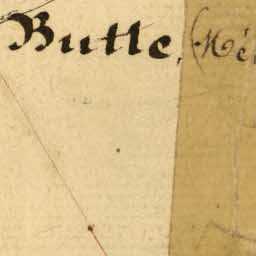 Butte. (Hé